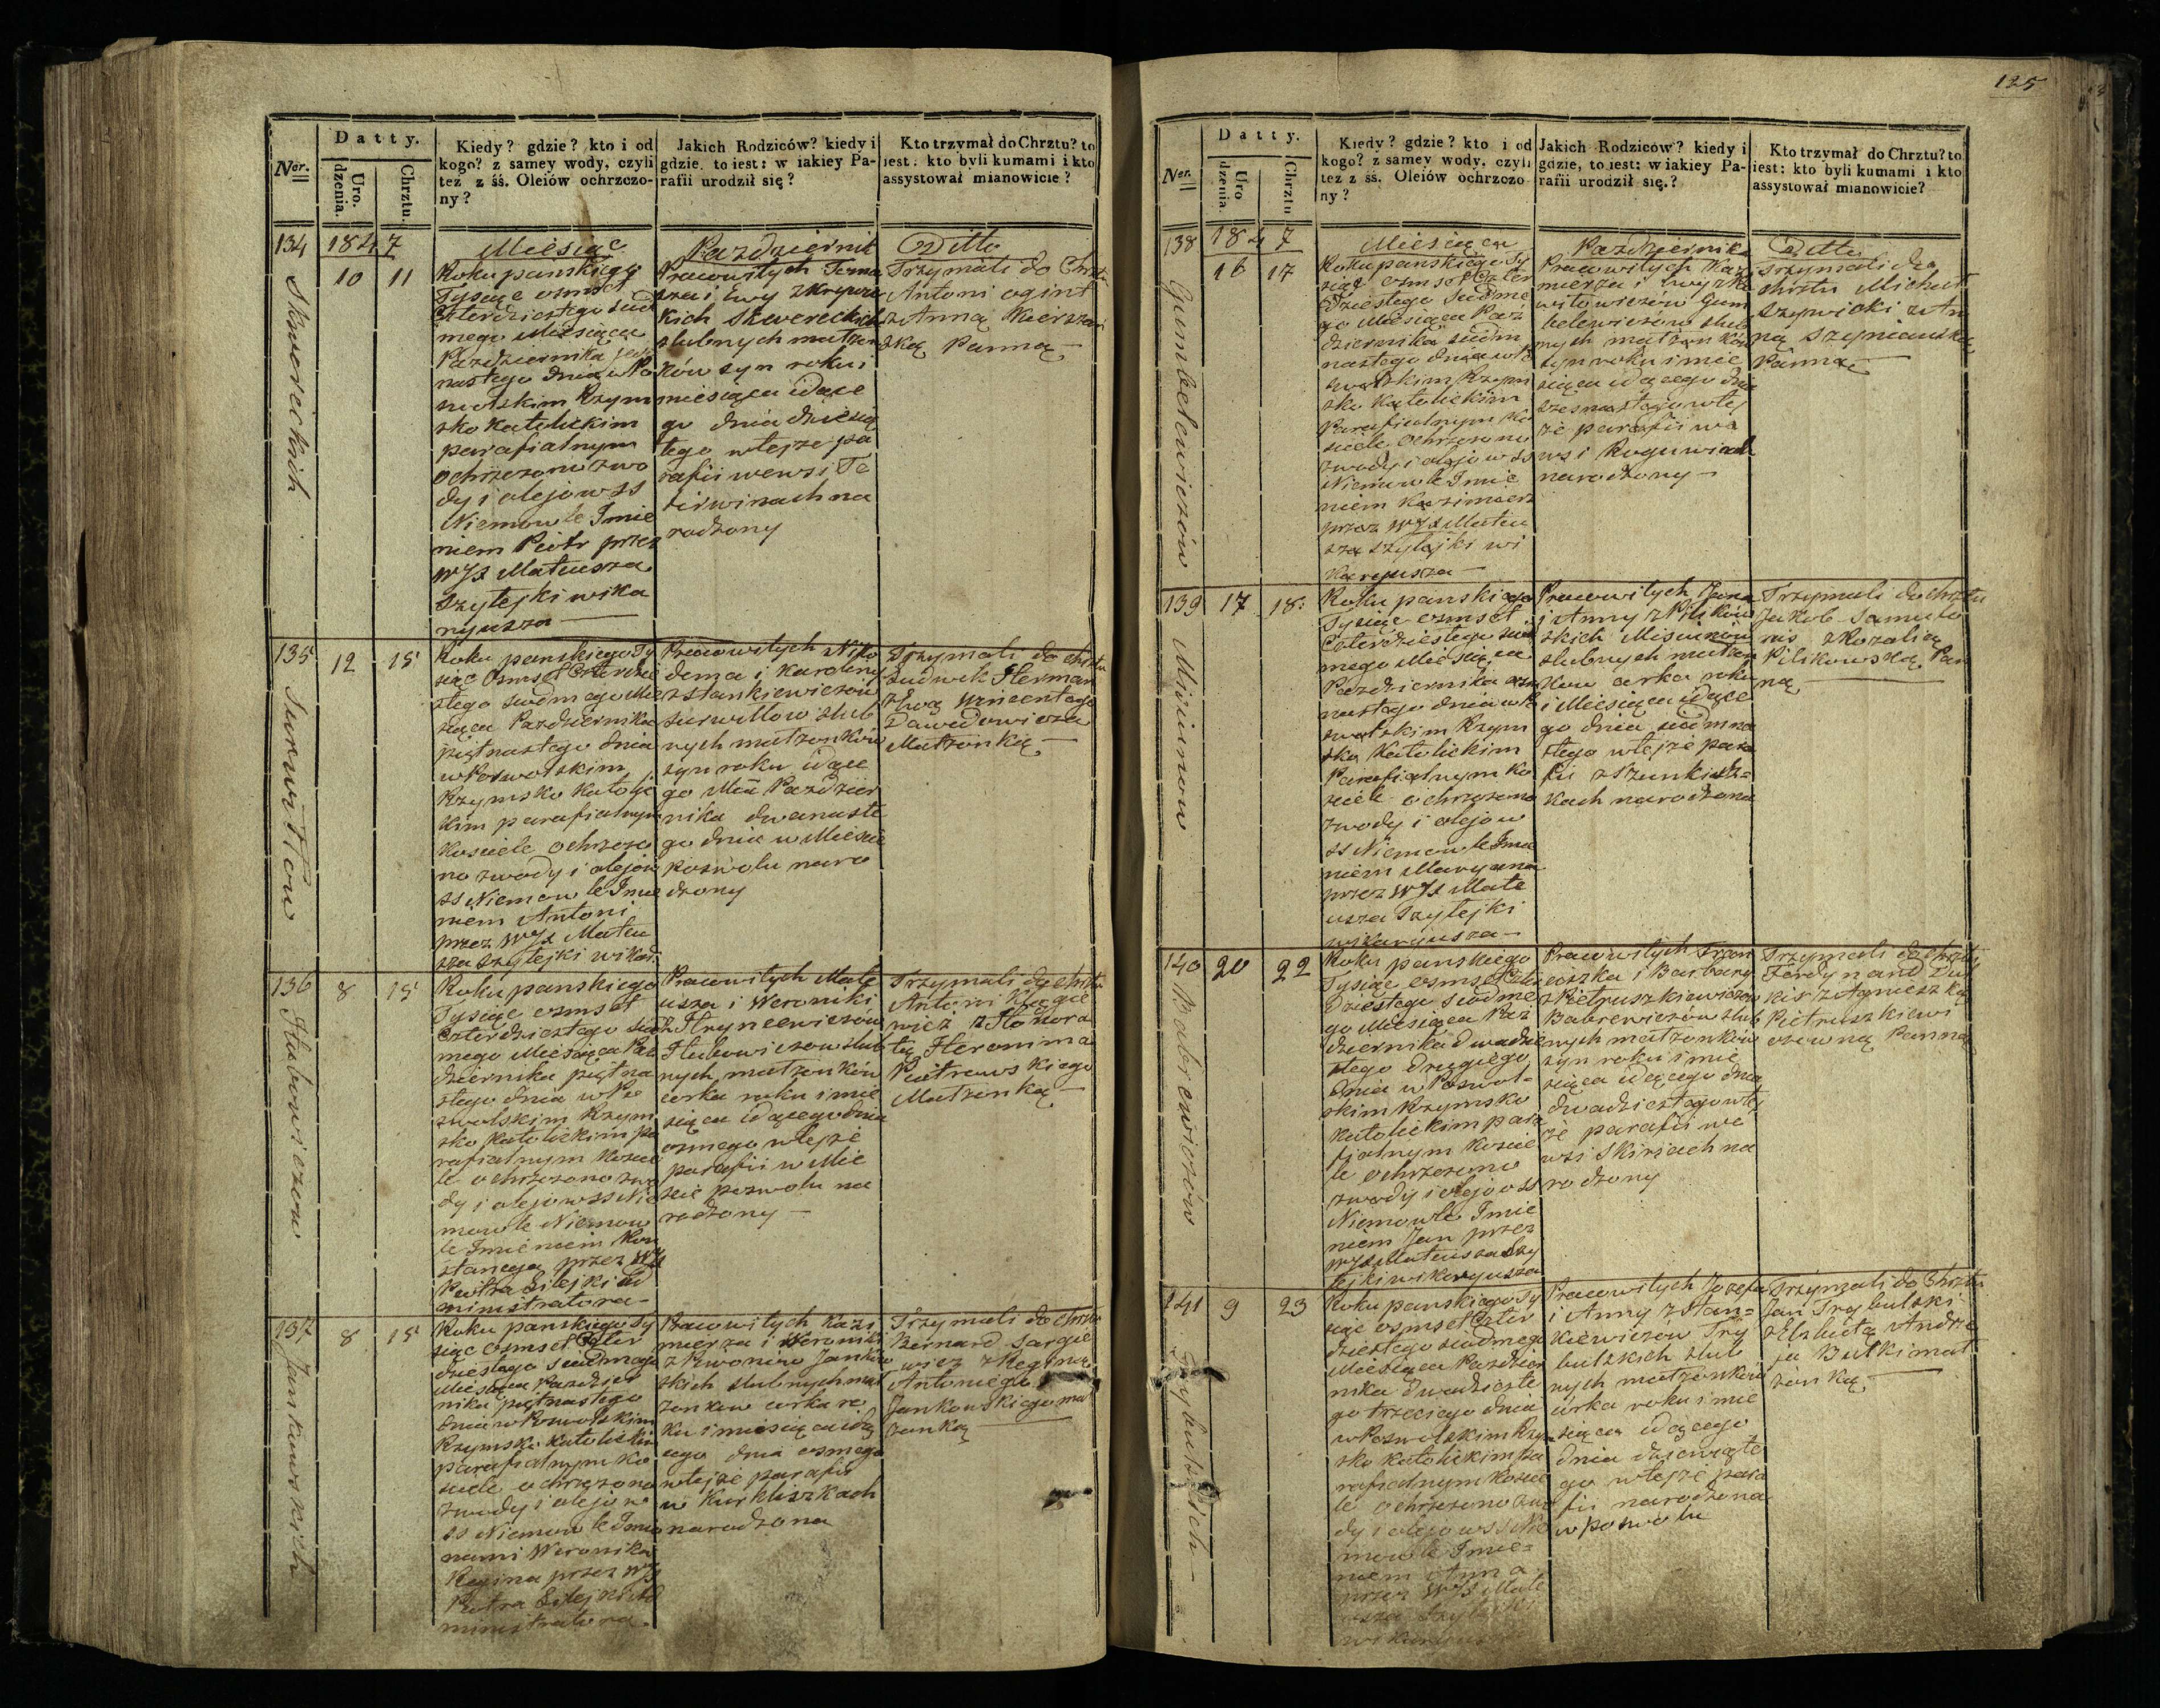 125
Datty.
Ner.
Uro.
dzenia.
Chrztu.
Kiedy? gdzie? kto i od
kogo? z samey wody, czyli
tez z śś. Oleiów ochrzczo-
ny?
Jakich Rodziców? kiedy i
gdzie. to iest: w iakiey Pa-
rafii urodził się?
Kto trzymał do Chrztu? to
iest: kto byli kumami i kto
assystował mianowicie?
134
1847
10
11
Skwereckich
Miesiąc
Roku pańskiego
Tysiąc osmset
Czterdziestego siod
mego Miesiąca
Pazdziernika jede
nastego dnia w Po
swolskim Rzym
sko Katolickim
parafialnym
ochrzczono z wo
dy i olejow SS
Niemowle Imie
niem Piotr przez
WJX Mateusza
Szylejki wika
ryusza
Pazdziernik
Pracowitych Toma
sza i Ewy
kich Skwereckich
slubnych małżon
ków syn roku i
miesiąca idące
go dnia dziesią
tego w tejże pa
rafii we wsi Ta
na
rodzony
Ditto
Trzymali do Chrztu
Antoni ogint
z Anną
ską Panną
135
12
15
Surwiłłow
Roku panskiego Ty
siąc Osmset Czterdzie
stego siodmego Mie
siąca Pazdziernika
piętnastego dnia
w Poswolskim
Rzymsko Katolic
kim parafialnym
Kosciele ochrzczo
no z wody i olejow
SS Niemowle Imie
niem Antoni
przez WJX Mateu
sza Szylejki wikar
Pracowitych Niko
dema i Karoliny
z Stankiewiczow
Surwiłłow slub
nych małżonków
syn roku idące
go Mca Pazdzier
nika dwunaste
go dnia w Miescie
Poswolu naro
dzony
Trzymali do chrztu
Ludwik Herman
z Ewą Wincentego
Dawidowicza
Małżonką
136
8
15
Hubowiczow
Roku panskiego
Tysiąc ozmset
Czterdziestego siod
mego Miesiąca Paz
dziernika piętna
stego dnia w Po
swolskim Rzym
sko Katolickim pa
rafialnym Kosciel
le ochrzczono z wo
dy i olejow SS Nie
mowle Niemow
le Imieniem Kon
stancya przez WJX
Piotra Silejki Ad
ministratora
Pracowitych Mate
usza i Weroniki
z Hryncewiczów
Hubowiczow slub
nych małżonkow
corka roku i mie
siąca idącego dnia
osmego w tejże
parafii w Mie
scie poswolu na
rodzony
Trzymali do chrztu
Antoni
wicz z Honora
tą Heronima
Piotrowskiego
Małżonką
137
8
15
Jankowskich
Roku panskiego Ty
siąc osmset Czter
dziestego siodmego
Miesiąca Pazdzier
nika piętnastego
dnia w Poswolskim
Rzymsko Katolickim
parafialnym ko
sciele ochrzczono
z wody i olejow
SS Niemowle Imio
nami Weronika
Regina przez WJX
Piotra Silejki Ad
ministratora
Pracowitych Kazi
mierza i Weroniki
z Jankow
skich slubnych mał
żonkow corka ro
ku i miesiąca idą
cego dnia osmego
w tejże parafii
w Kurkliszkach
narodzona
Trzymali do chrztu
Bernard
wicz z Reginą
Antoniego
Jankowskiego mał
żonką
Datty.
Ner.
Uro
dzenia.
Chrztu
Kiedy? gdzie? kto i od
kogo? z samey wody, czyli
tez z śś. Oleiów ochrzczo
ny?
Jakich Rodziców? kiedy i
gdzie, to iest: w iakiey Pa-
rafii urodził się.?
Kto trzymał do Chrztu? to
iest: kto byli kumami i kto
assystował mianowicie?
138
1847
16
17
Gumbelewiczów
Miesiąca
Roku panskiego Ty
siąc osmset Czter
dziestego siodme
go Miesiąca Paz
dziernika siedm
nastego dnia w Po
swolskim Rzym
sko Katolickim
Parafialnym Ko
sciele ochrzczono
z wody i olejow SS
Niemowle Imie
niem Kazimierz
przez WJX Mateu
sza Szylejki wi
karyusza
Pazdziernika
Pracowitych Kazi
mierza i
Gum
belewiczów slub
nych małżonków
syn roku i mie
siąca idącego dnia
szesnastego w tej
że parafii we
wsi
narodzony
Ditto
Trzymali do
chrztu Michał
Szywicki z An
ną
Panną
139
17
18
Misiunow
Roku panskiego
Tysiąc osmset
Czterdziestego siod
mego Miesiąca
Pazdziernika osm
nastego dnia w Po
swolskim Rzym
sko Katolickim
Parafialnym Ko
sciele ochrzczono
z wody i olejow
SS Niemowle Imie
niem Maryanna
przez WJX Mate
usza Szylejki
wikaryusza
Pracowitych Jana
i Anny z Pilikow
skich Misiunow
slubnych małżon
kow corka roku
i Miesiąca idące
go dnia siedmna
stego w tejże para
fii
kach narodzona
Trzymali do chrztu
Jakob Samulo
nis z Rozalią
Pilikowską Pan
ną
140
20
22
Babrewiczów
Roku panskiego
Tysiąc osmset Czter
dziestego siodme
go Miesiąca Paz
dziernika dwudzie
stego drugiego
dnia w Poswol
skim Rzymsko
Katolickim para
fialnym Koscie
le ochrzczono
z wody i olejow SS
Niemowle Imie
niem Jan przez
WJX Mateusza Szy
lejki wikaryusza
Pracowitych Fran
ciszka i Barbary
z Pietruszkiewiczow
Babrewiczow slub
nych małżonków
syn roku i mie
siąca idącego dnia
dwudziestego w tej
że parafii we
wsi Skiriach na
rodzony
Trzymali do chrztu
Ferdynand
z Agnieszką
Pietruszkiewi
czowną Panną
141
9
23
Trybulskich
Roku panskiego Ty
siąc osmset Czter
dziestego siodmego
Miesiąca Pazdzier
nika dwudzieste
go trzeciego dnia
w Poswolskim Rzym
sko Katolickim pa
rafialnym Koscie
le ochrzczono z wo
dy i olejow SS Nie
mowle Imie
niem Anna
przez WJX Mate
usza Szylejki
wikaryusza
Pracowitych Jozefa
i Anny z Stan
kiewiczow Try
bulskich slub
nych małżonkow
córka roku i mie
siąca idącego
dnia dziewiąte
go w tejże para
fii narodzona
w poswolu
Trzymali do Chrztu
Jan Trybulski
z Elzbietą Andrze
ja Butki mał
żonką